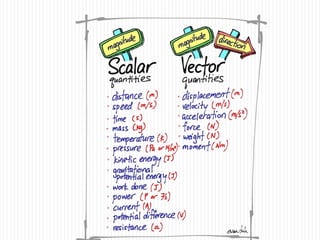 magnitude
Scalar
quantities
· distance (m)
· speed (m/s)
· time (s)
· mass (kg)
· temperature (K)
· pressure (Pa or N/m²)
· kinetic energy (J)
· gravitational
potential energy (J)
· work done (J)
· power (P or J/s)
· current (A)
· potential difference (V)
· resistance (Ω)
magnitude
direction
Vector
quantities
· displacement (m)
· velocity (m/s)
· acceleration (m/s²)
· force (N)
· weight (N)
· moment (Nm)